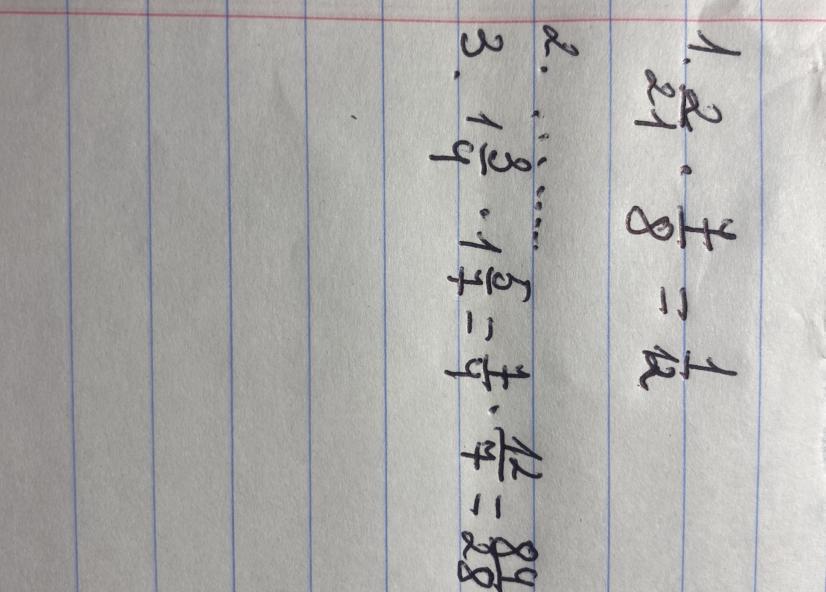 1. 2/21 · 7/8 = 1/12
2. ..........
3. 1 3/4 · 1 5/7 = 7/4 · 12/7 = 84/28